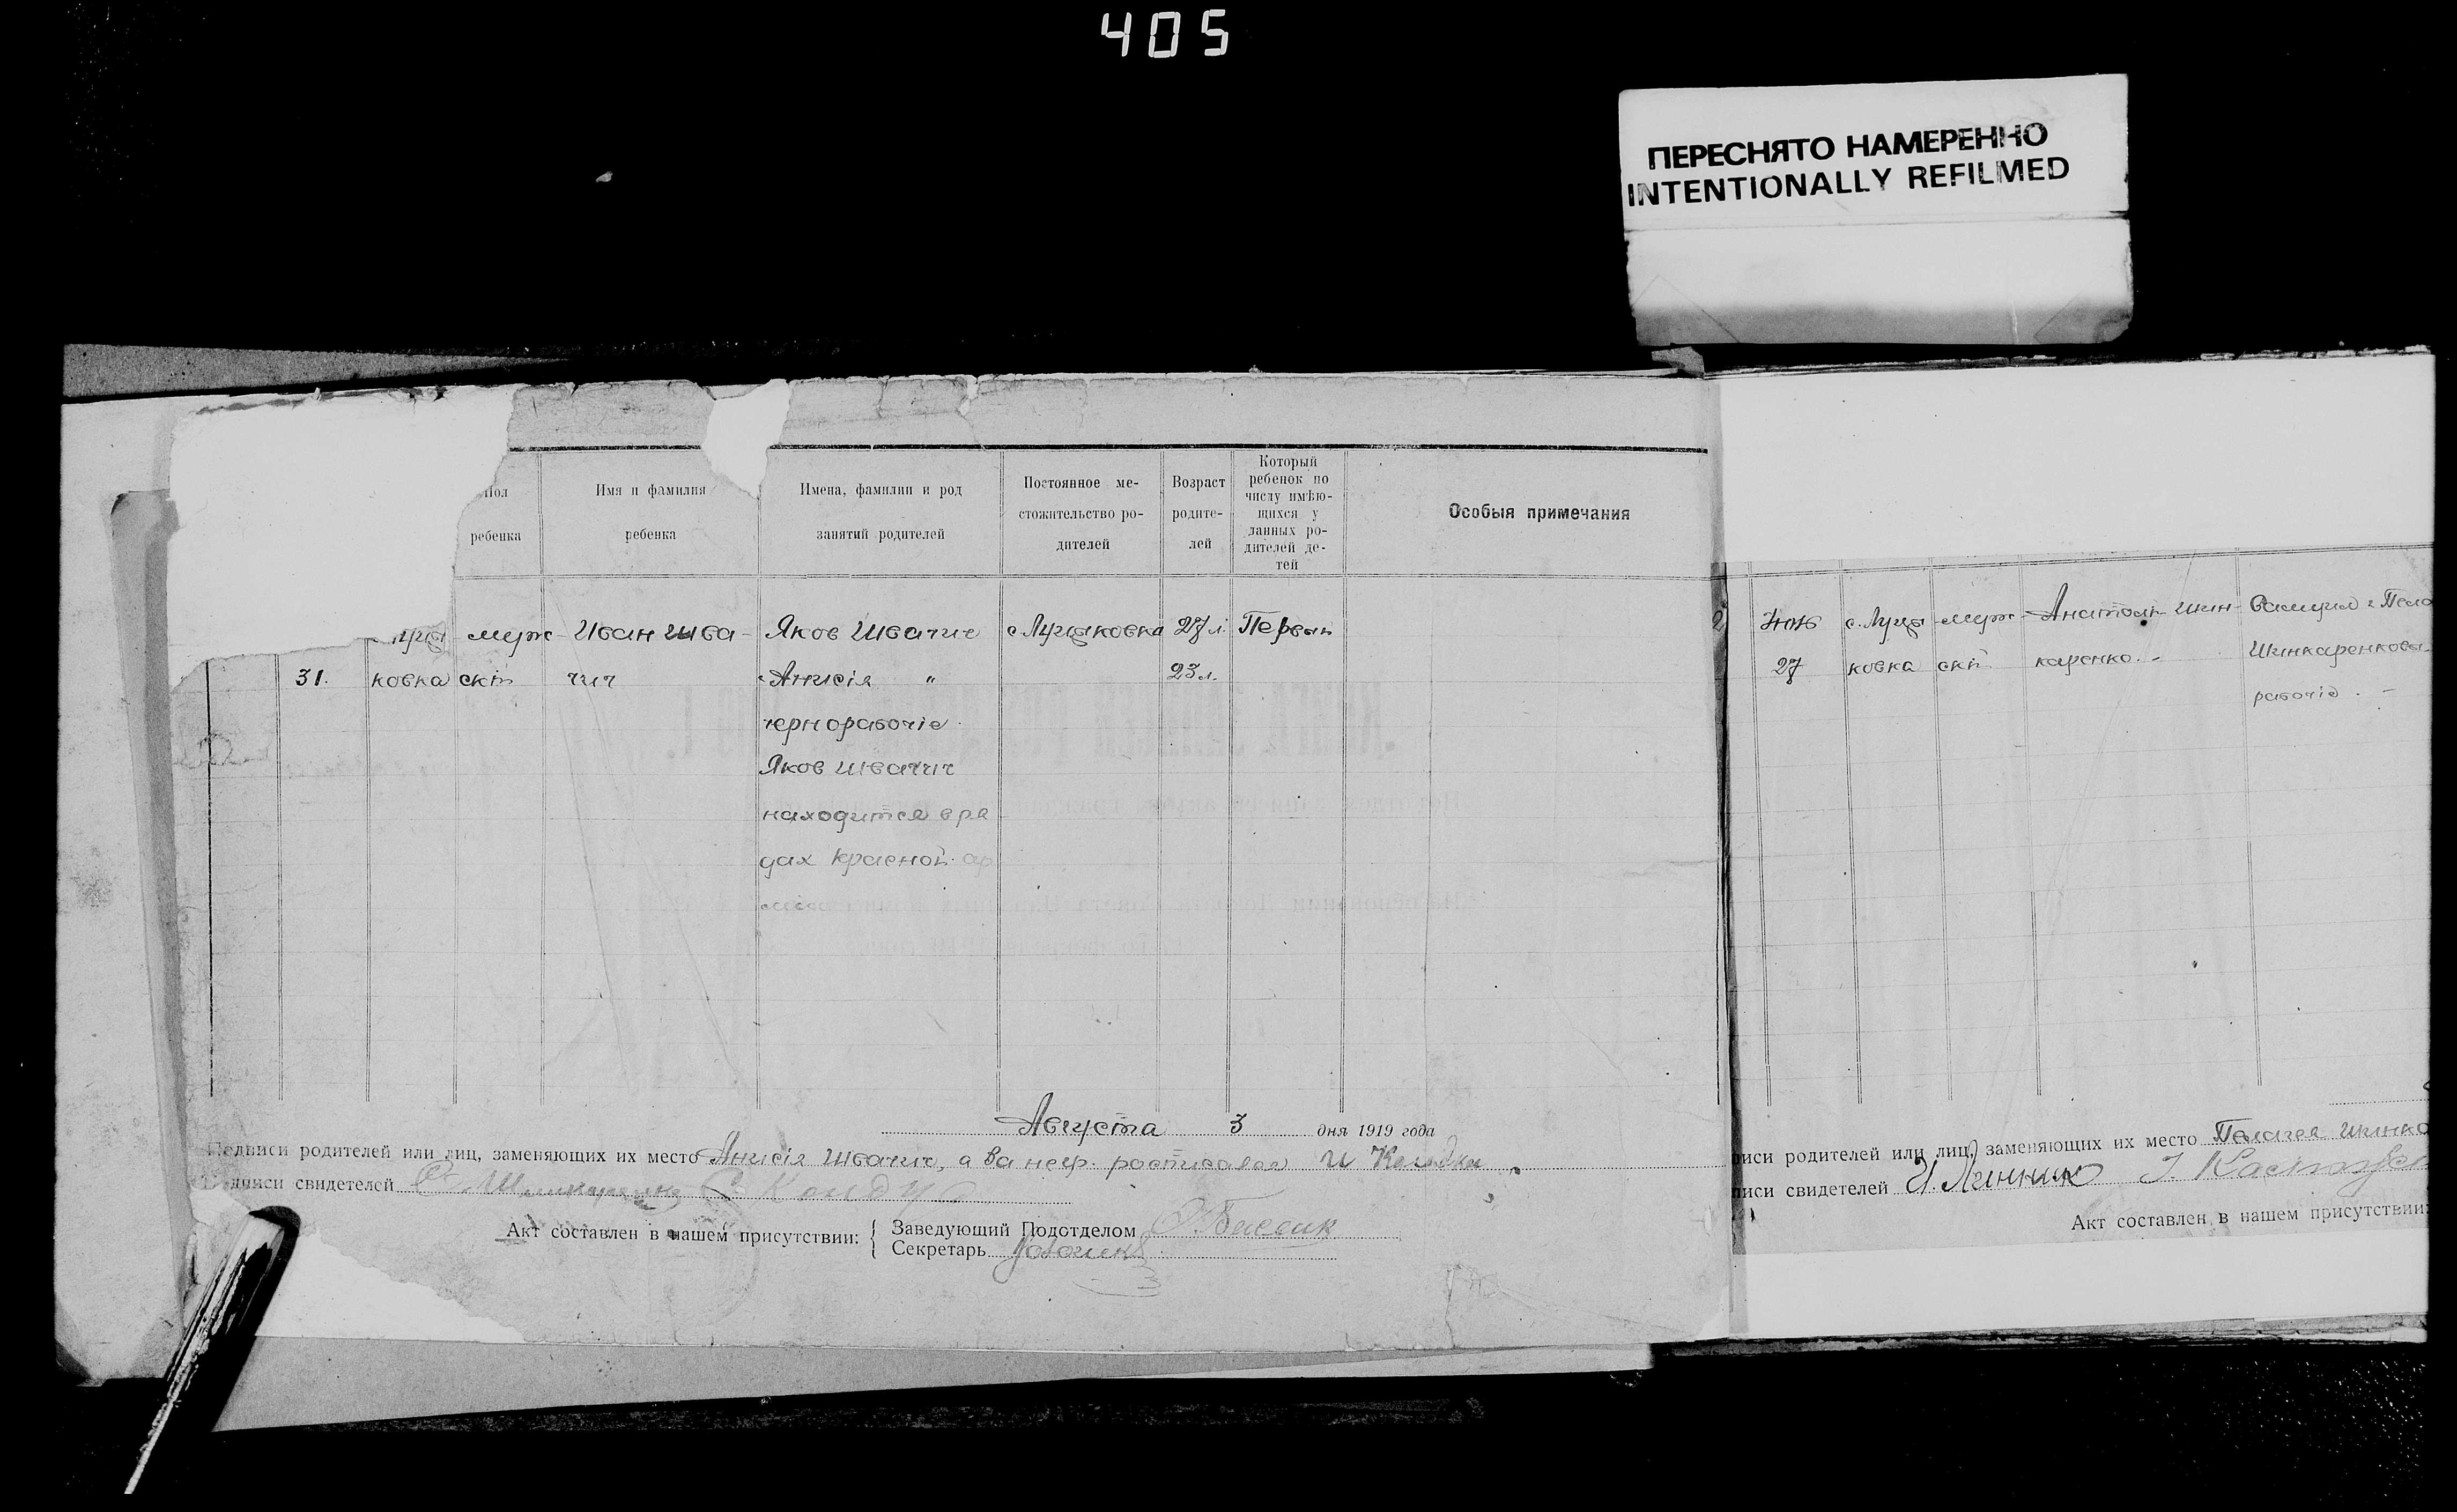 405
ПЕРЕСНЯТО НАМЕРЕННО
INTENTIONALLY REFILMED
Пол
ребенка
Имя и фамилия
ребенка
Имена, фамилии и род
занятий родителей
Постоянное ме-
стожительство ро-
дителей
Возраст
родите-
лей
Который
ребенок по
числу имѣю-
щихся у
данных ро-
дителей де-
тей
Особыя примечания
муж- Иван Шва- Яков Швачич с. Луцяковка 27 л. Первый
31. ковка ский чич Анисія " 23 л.
чернорабочіе
Яков Швачич
находится в ря
дах Красной ар
міи
Августа 3 дня 1919 года
Подписи родителей или лиц, заменяющих их место Анисія Швачич, а за неф. росписался И
Подписи свидетелей
Акт составлен в нашем присутствии:
Заведующий Подотделом
Секретарь
2 с. Луця муж- Анатолій Шин-
27 ковка ский каренко. Шинкаренковы
рабочіе
писи родителей или лиц, заменяющих их место Пелагея Шинка
писи свидетелей И. Линник
Акт составлен в нашем присутствии: